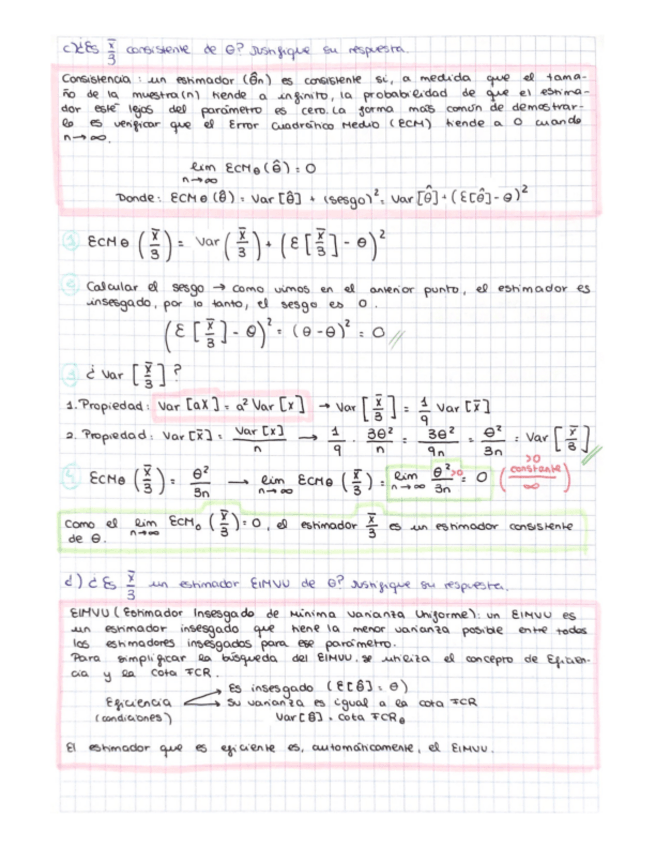 c) ¿Es x̄/3 consistente de θ? Justifique su respuesta.
Consistencia: un estimador (θ̂n) es consistente si, a medida que el tama-
ño de la muestra (n) tiende a infinito, la probabilidad de que el estima-
dor esté lejos del parámetro es cero. La forma más común de demostrar-
lo es verificar que el Error Cuadrático Medio (ECM) tiende a 0 cuando
n→∞.
lim n→∞ ECMθ(θ̂) = 0
Donde: ECMθ(θ̂) = Var[θ̂] + (sesgo)² = Var[θ̂] + (E[θ̂] - θ)²
1. ECMθ(x̄/3) = Var(x̄/3) + (E[x̄/3] - θ)²
2. Calcular el sesgo → como vimos en el anterior punto, el estimador es
insesgado, por lo tanto, el sesgo es 0.
(E[x̄/3] - θ)² = (θ - θ)² = 0
3. ¿Var[x̄/3]?
1. Propiedad: Var[aX] = a² Var[x] → Var[x̄/3] = 1/9 Var[x̄]
2. Propiedad: Var[x̄] = Var[x]/n → 1/9 · 3θ²/n = 3θ²/9n = θ²/3n = Var[x̄/3]
ECMθ(x̄/3) = θ²/3n → lim n→∞ ECMθ(x̄/3) = lim n→∞ θ²/3n = 0 (constante/∞) >0 >0
Como el lim n→∞ ECMθ(x̄/3) = 0, el estimador x̄/3 es un estimador consistente
de θ.
d) ¿Es x̄/3 un estimador EIMVU de θ? Justifique su respuesta.
EIMVU (Estimador Insesgado de Mínima Varianza Uniforme): un EIMVU es
un estimador insesgado que tiene la menor varianza posible entre todos
los estimadores insesgados para ese parámetro.
Para simplificar la búsqueda del EIMVU. se utiliza el concepto de Eficien-
cia y la cota FCR.
Es insesgado (E[θ̂] = θ)
Eficiencia
Su varianza es igual a la cota FCR
(condiciones) Var[θ̂] = cota FCRθ
El estimador que es eficiente es, automáticamente, el EIMVU.